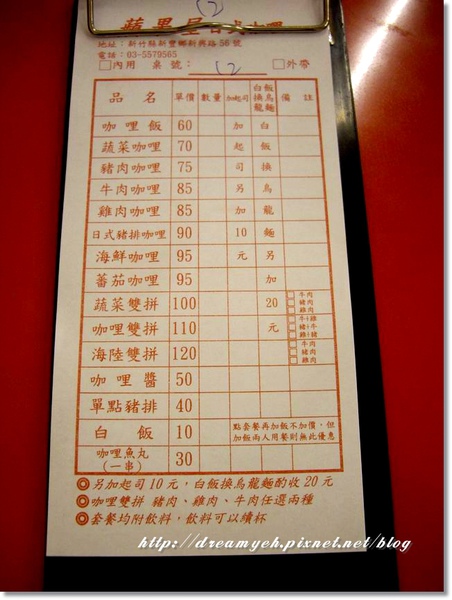 12
蘋果屋日式咖哩
地址：新竹縣新豐鄉新興路56號
電話：03-5579565
□內用 桌號：12 □外帶
品名 單價 數量 加起司 白飯換烏龍麵 備註
咖哩飯 60 加 白
蔬菜咖哩 70 起 飯
豬肉咖哩 75 司 換
牛肉咖哩 85 另 烏
雞肉咖哩 85 加 龍
日式豬排咖哩 90 10 麵
海鮮咖哩 95 元 另
蕃茄咖哩 95 加
蔬菜雙拼 100 20 □牛肉 □豬肉 □雞肉
咖哩雙拼 110 元 □牛+雞 □豬+牛 □雞+豬
海陸雙拼 120 □牛肉 □豬肉 □雞肉
咖哩醬 50
單點豬排 40
白飯 10 點套餐再加飯不加價，但加飯兩人用餐則無此優惠
咖哩魚丸（一串） 30
◎另加起司10元，白飯換烏龍麵酌收20元
◎咖哩雙拼 豬肉、雞肉、牛肉任選兩種
◎套餐均附飲料，飲料可以續杯
http://dreamyeh.pixnet.net/blog